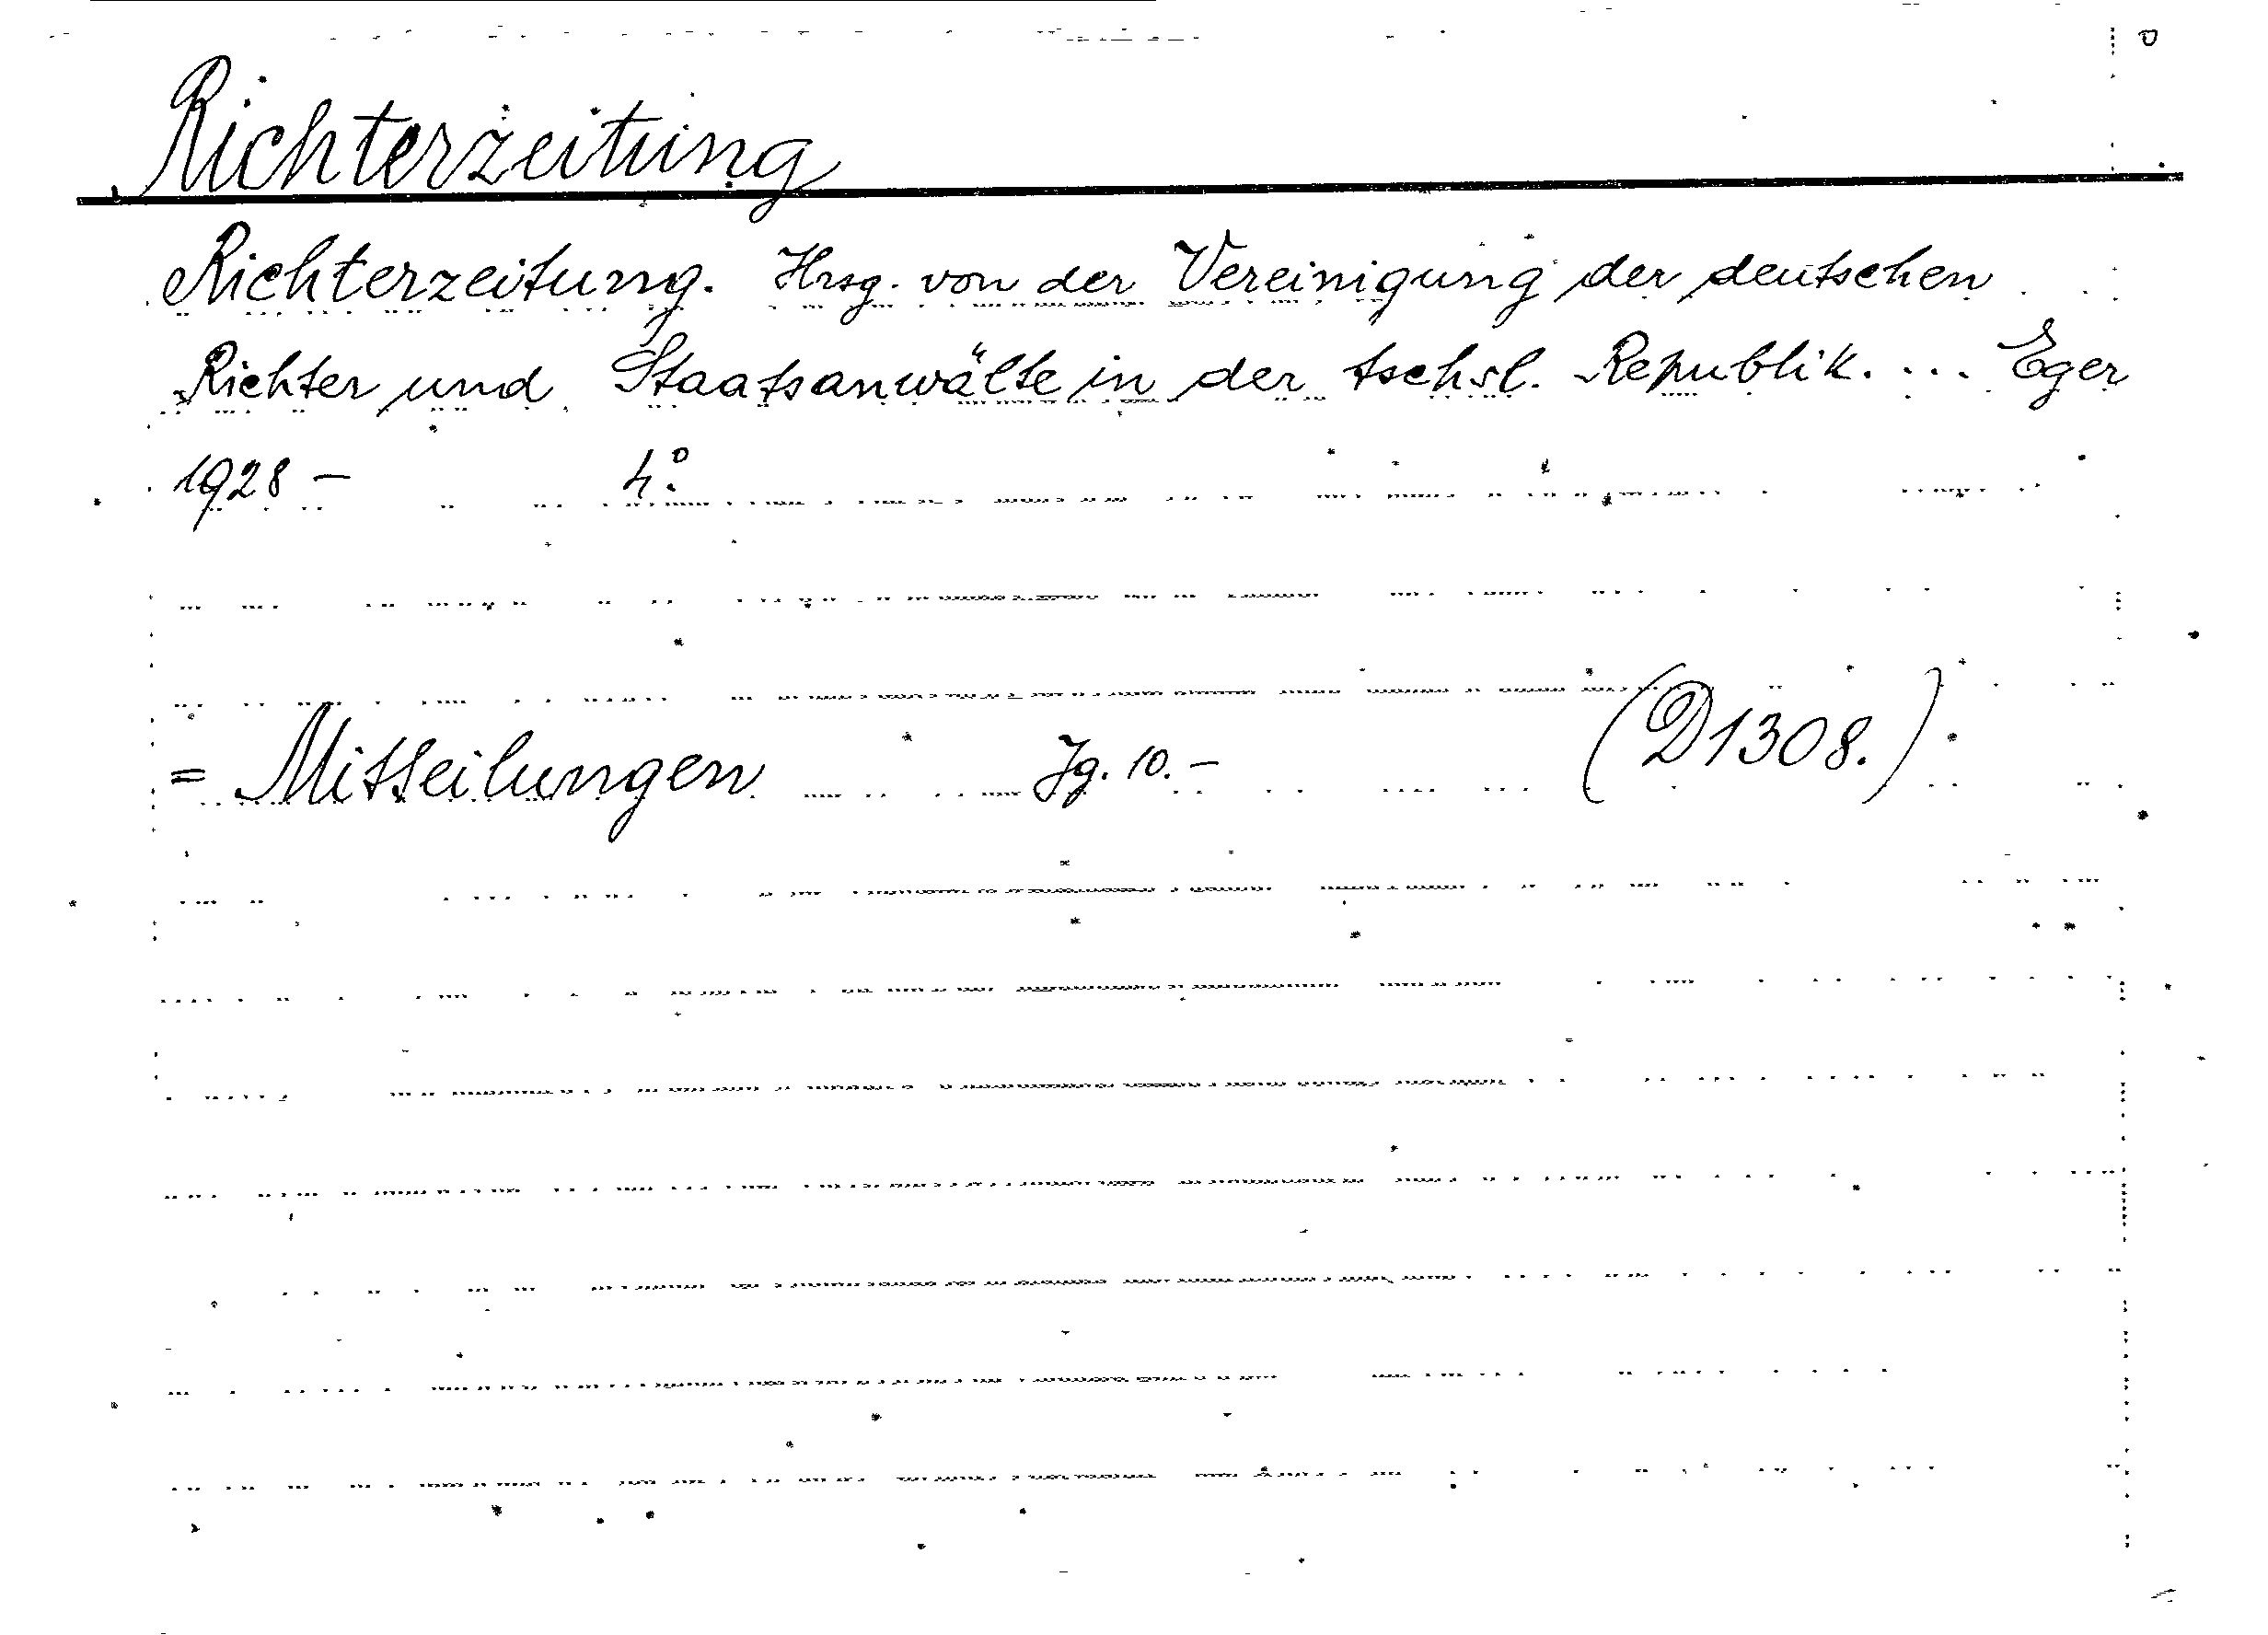 Richterzeitung
Richterzeitung. Hrsg. von der Vereinigung der deutschen
Richter und Staatsanwälte in der tschsl. Republik. ... Eger
1928 – 4°.
= Mitteilungen Jg. 10. – (D1308.)